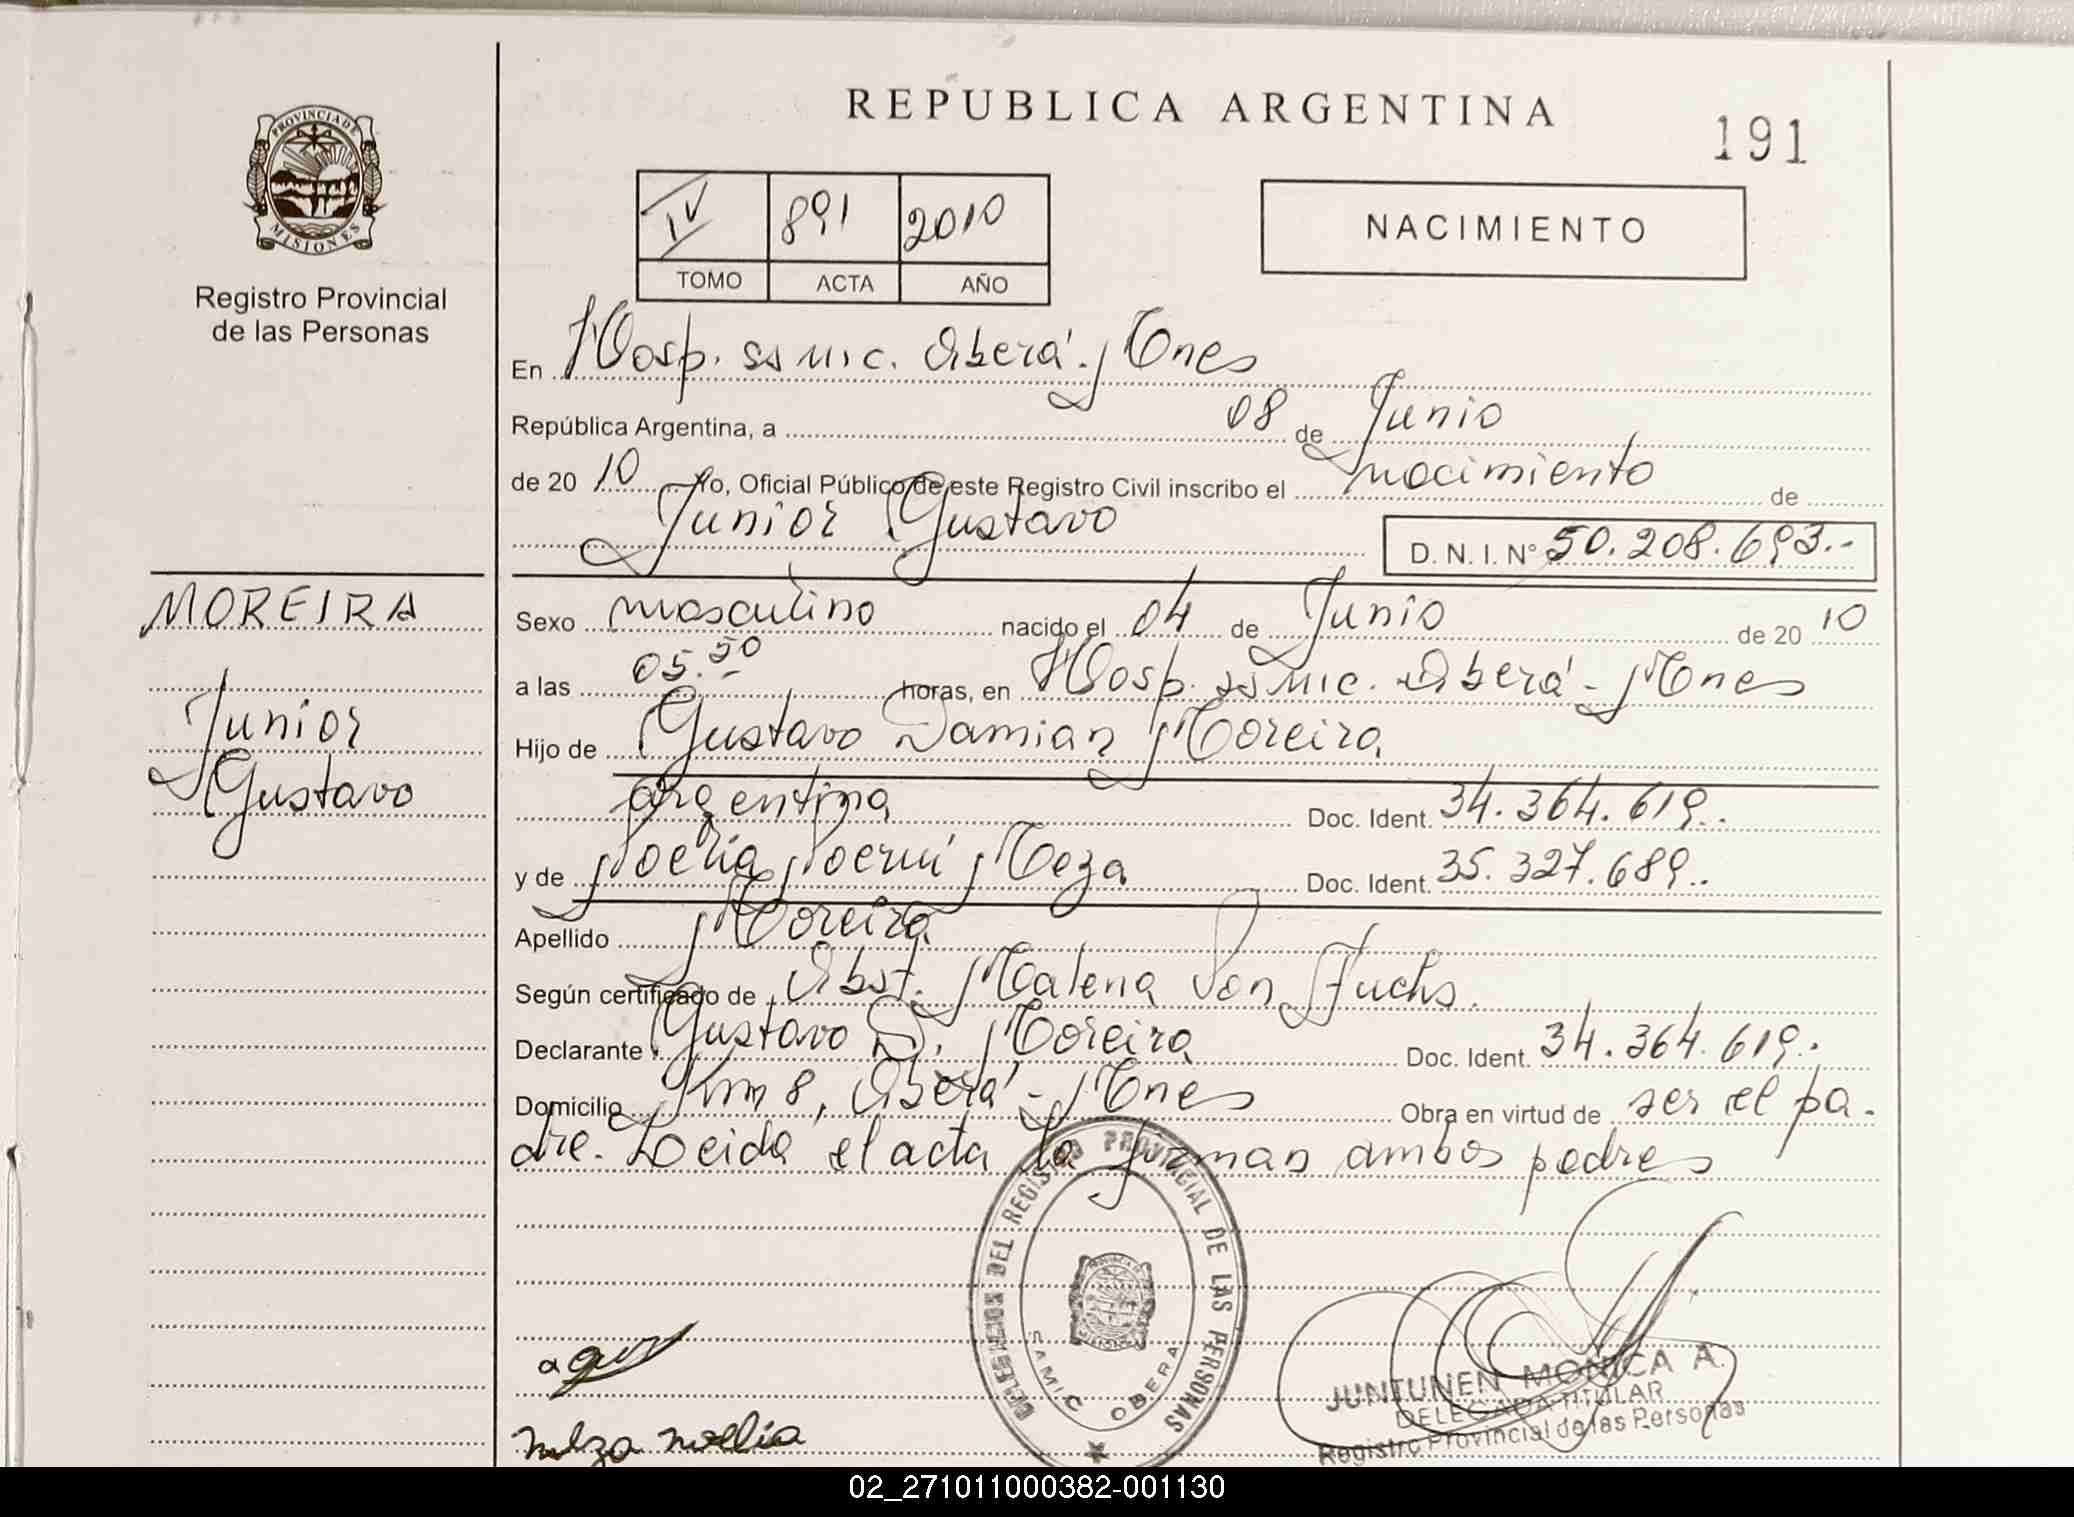 REPUBLICA ARGENTINA
191
PROVINCIA DE
MISIONES
Registro Provincial
de las Personas
IV 891 2010
TOMO ACTA AÑO
NACIMIENTO
En Hosp. SAMIC. Oberá - Mnes
República Argentina, a 08 de Junio
de 20 10 Yo, Oficial Público de este Registro Civil inscribo el nacimiento de
Junior Gustavo
D. N. I. Nº 50.208.693.-
MOREIRA
Junior
Gustavo
Sexo masculino nacido el 04 de Junio de 20 10
a las 05.50 horas, en Hosp. SAMIC. Oberá - Mnes
Hijo de Gustavo Damian Moreira
argentina Doc. Ident. 34.364.619..
y de Noelia Noemí Meza Doc. Ident. 35.327.689..
Apellido Moreira
Según certificado de Obst. Malena Von Fuchs.
Declarante Gustavo D. Moreira Doc. Ident. 34.364.619..
Domicilio Km 8, Oberá - Mnes Obra en virtud de ser el pa-
dre. Leida el acta la firman ambos padres
DELEGACION DEL REGISTRO PROVINCIAL DE LAS PERSONAS
SAMIC OBERA
JUNTUNEN MONICA A.
DELEGADA TITULAR
Registro Provincial de las Personas
meza noelia
02_271011000382-001130